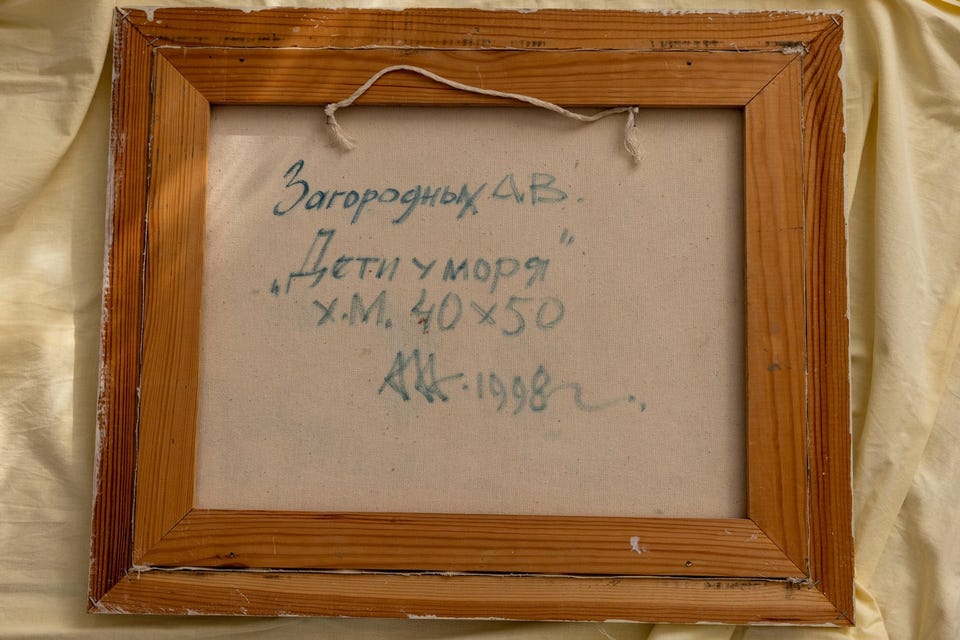 Загородных АВ.
„Дети у моря"
х.м. 40х50
1998г.